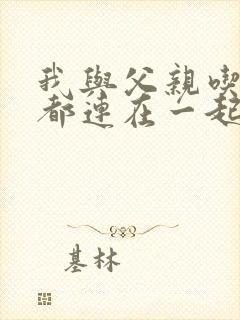 我與父親喫
都連在一起
基林